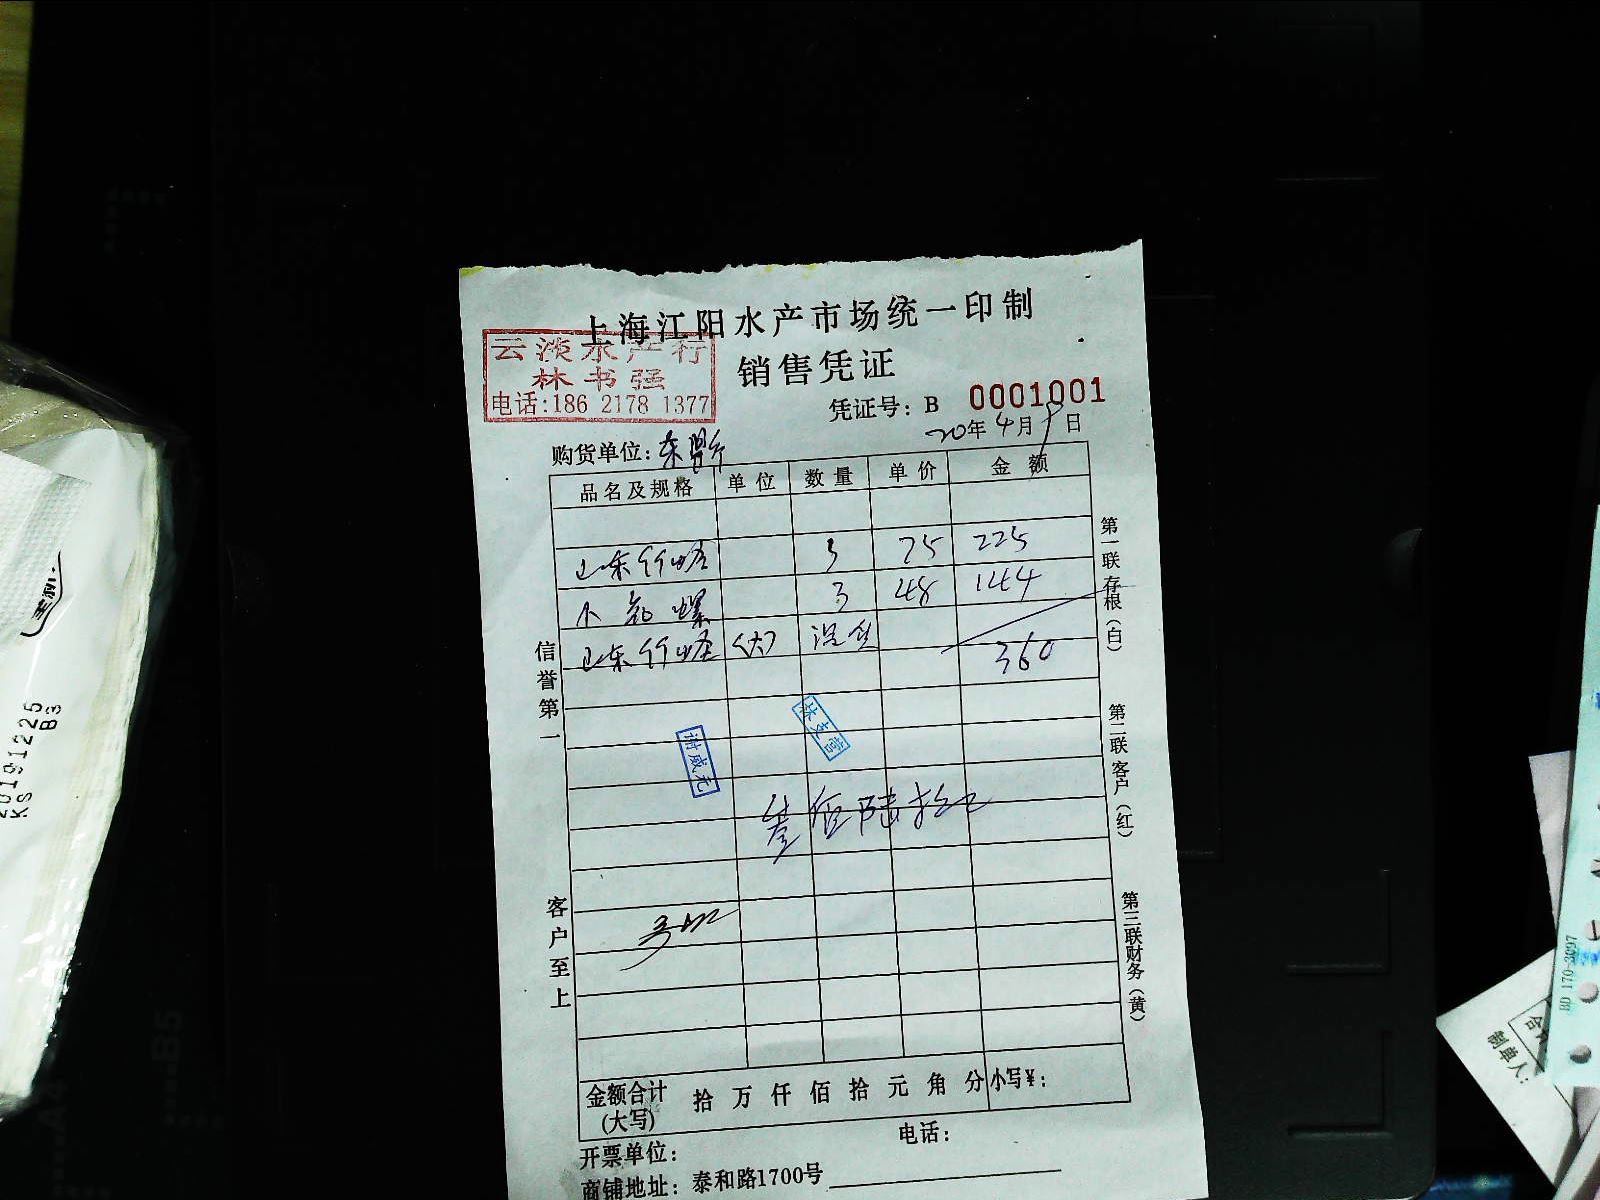 上海江阳水产市场统一印制
云淡水产行
林书强
电话:186 2178 1377
销售凭证
凭证号: B 0001001
20年4月9日
购货单位:
品名及规格 单位 数量 单价 金额
山东竹蛏 3 75 225
小 螺 3 48 144
山东竹蛏 (大) 没货
360
谢咸元
叁佰陆拾元
信誉第一
客户至上
第一联存根(白)
第二联客户(红)
第三联财务(黄)
金额合计(大写) 拾 万 仟 佰 拾 元 角 分 小写¥:
开票单位: 电话:
商铺地址: 泰和路1700号
20191225
KS B3
BD 170-3097
制单人:
B5